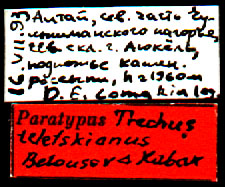 16.VII.93
Алтай, сев. часть Чу-
лышманского нагорья,
сев. скл. г. Аюкель,
подножье камен.
россыпи, h 1960м
D. E. Lomakin leg.
Paratypus Trechus
uletskianus
Belousov & Kabak